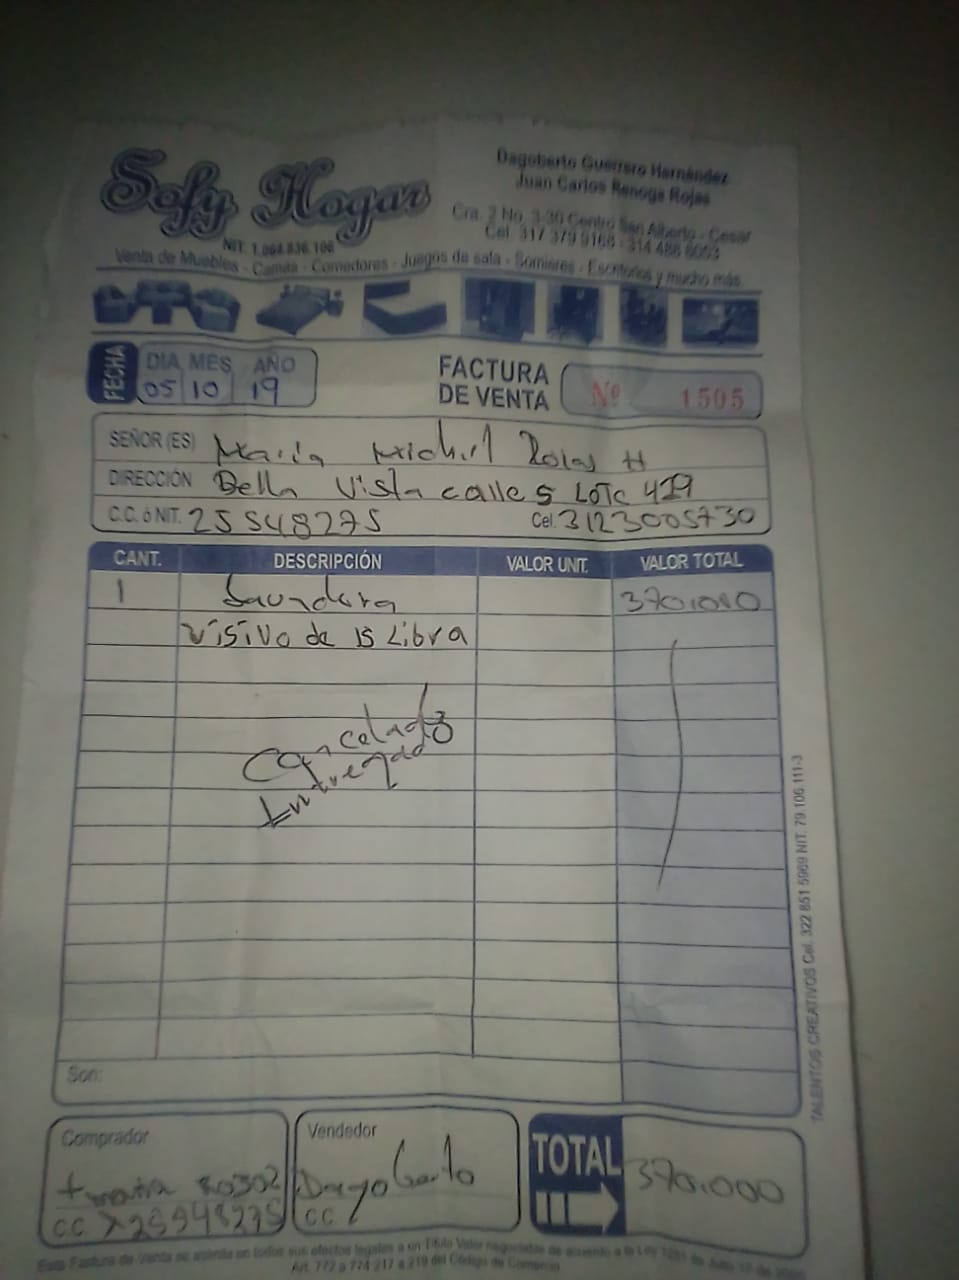 Sofy Hogar
Dagoberto Guerrero Hernández
Juan Carlos Renoga Rojas
Cra. 2 No. 3-30 Centro San Alberto - Cesar
Cel. 317 379 9168 - 314 488 6053
NIT: 1.064.836.106
Venta de Muebles - Camas - Comedores - Juegos de sala - Somieres - Escritorios y mucho más
FECHA
DIA MES AÑO
05 10 19
FACTURA
DE VENTA
Nº 1505
SEÑOR (ES) Maria Michel Rojas H
DIRECCIÓN Bella Vista calle 5 Lote 429
C.C. ó NIT. 25548275 Cel. 3123005730
CANT. DESCRIPCIÓN VALOR UNIT. VALOR TOTAL
1 Laundora 370.000
visivo de 15 Libra
Cancelado
Entregado
Son:
Comprador
+ maria
CC X25948275
Vendedor
Dagoberto
CC
TOTAL 370.000
TALENTOS CREATIVOS Cel. 322 851 5989 NIT. 79.106.111-3
Esta Factura de Venta se asimila en todos sus efectos legales a un Título Valor negociable de acuerdo a la Ley 1231 de Julio 17 de
Art. 772 a 774 217 a 219 del Código de Comercio